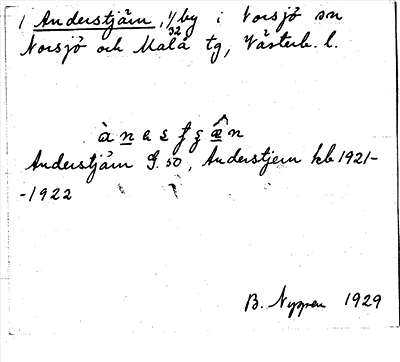 1 Anderstjärn, 1/32 by i Norsjö sn
Norsjö och Malå tg, Västerb. l.
Anderstjärn G. 50, Anderstjern kb 1921-
-1922
B. Nyppen 1929